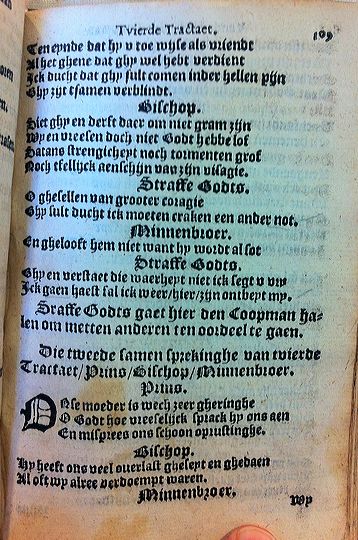 Tvierde Tractaet. 109
Ten eynde dat hy v toe wyse als vriendt
Al het ghene dat ghy wel hebt verdient
Ick ducht dat ghy sult comen inder hellen pijn
Ghy zyt tsamen verblindt.
Bischop.
Siet ghy en derft daer om niet gram zijn
Wy en vreesen doch niet Godt hebbe lof
Satans strengicheyt noch tormenten grof
Noch tfellijck aenschijn van zijn visagie.
Straffe Godts.
O ghesellen van grooter coragie
Ghy sult ducht ick moeten craken een ander not.
Minnenbroer.
En ghelooft hem niet want hy wordt al sot
Straffe Godts.
Ghy en verstaet die waerheyt niet ick segt v vry
Ick gaen haest sal ick weer/hier/zijn ontbeyt my.
Sraffe Godts gaet hier den Coopman ha-
len om metten anderen ten oordeel te gaen.
Die tweede samen sprekinghe van tvierde
Tractaet/Prins/Bischop/Minnenbroer.
Prins.
Onse moeder is wech zeer gheringhe
O Godt hoe vreeselijck sprack hy ons aen
En misprees ons schoon oprustinghe.
Bischop.
Hy heeft ons veel ouerlast gheseyt en ghedaen
Al oft wy alree verdoempt waren.
Minnenbroer.